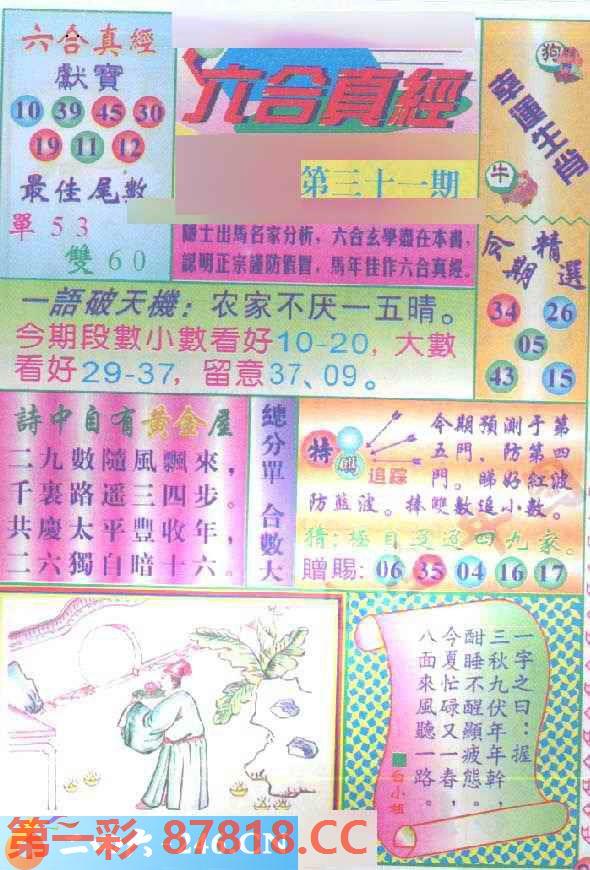 六合真經
獻寶
10 39 45 30
19 11 12
最佳尾數
單 5 3
雙 6 0
六合真經
第三十一期
隱士出馬名家分析，六合玄學盡在本書，
認明正宗謹防假冒，馬年佳作六合真經.
幸運生肖
狗
牛
今期精選
34 26
05
43 15
一語破天機：农家不厌一五晴。
今期段數小數看好10-20，大數
看好29-37，留意37、09。
詩中自有黃金屋
二九數隨風飄來，
千裏路遥三四步。
共慶太平豐收年，
二六獨自暗十六。
總分單 合數大
特碼
追踪
今期預測于第
五門、防第四
門。睇好紅波
防藍波。捧雙數追小數。
猜：極目
四九家。
贈賜：06 35 04 16 17
一字之曰：握
三秋九伏年年幹，
酣睡不醒顯疲態。
今夏忙碌又一春，
八面來風聽一路。
台小姐
第一彩 87818.CC
246.CN